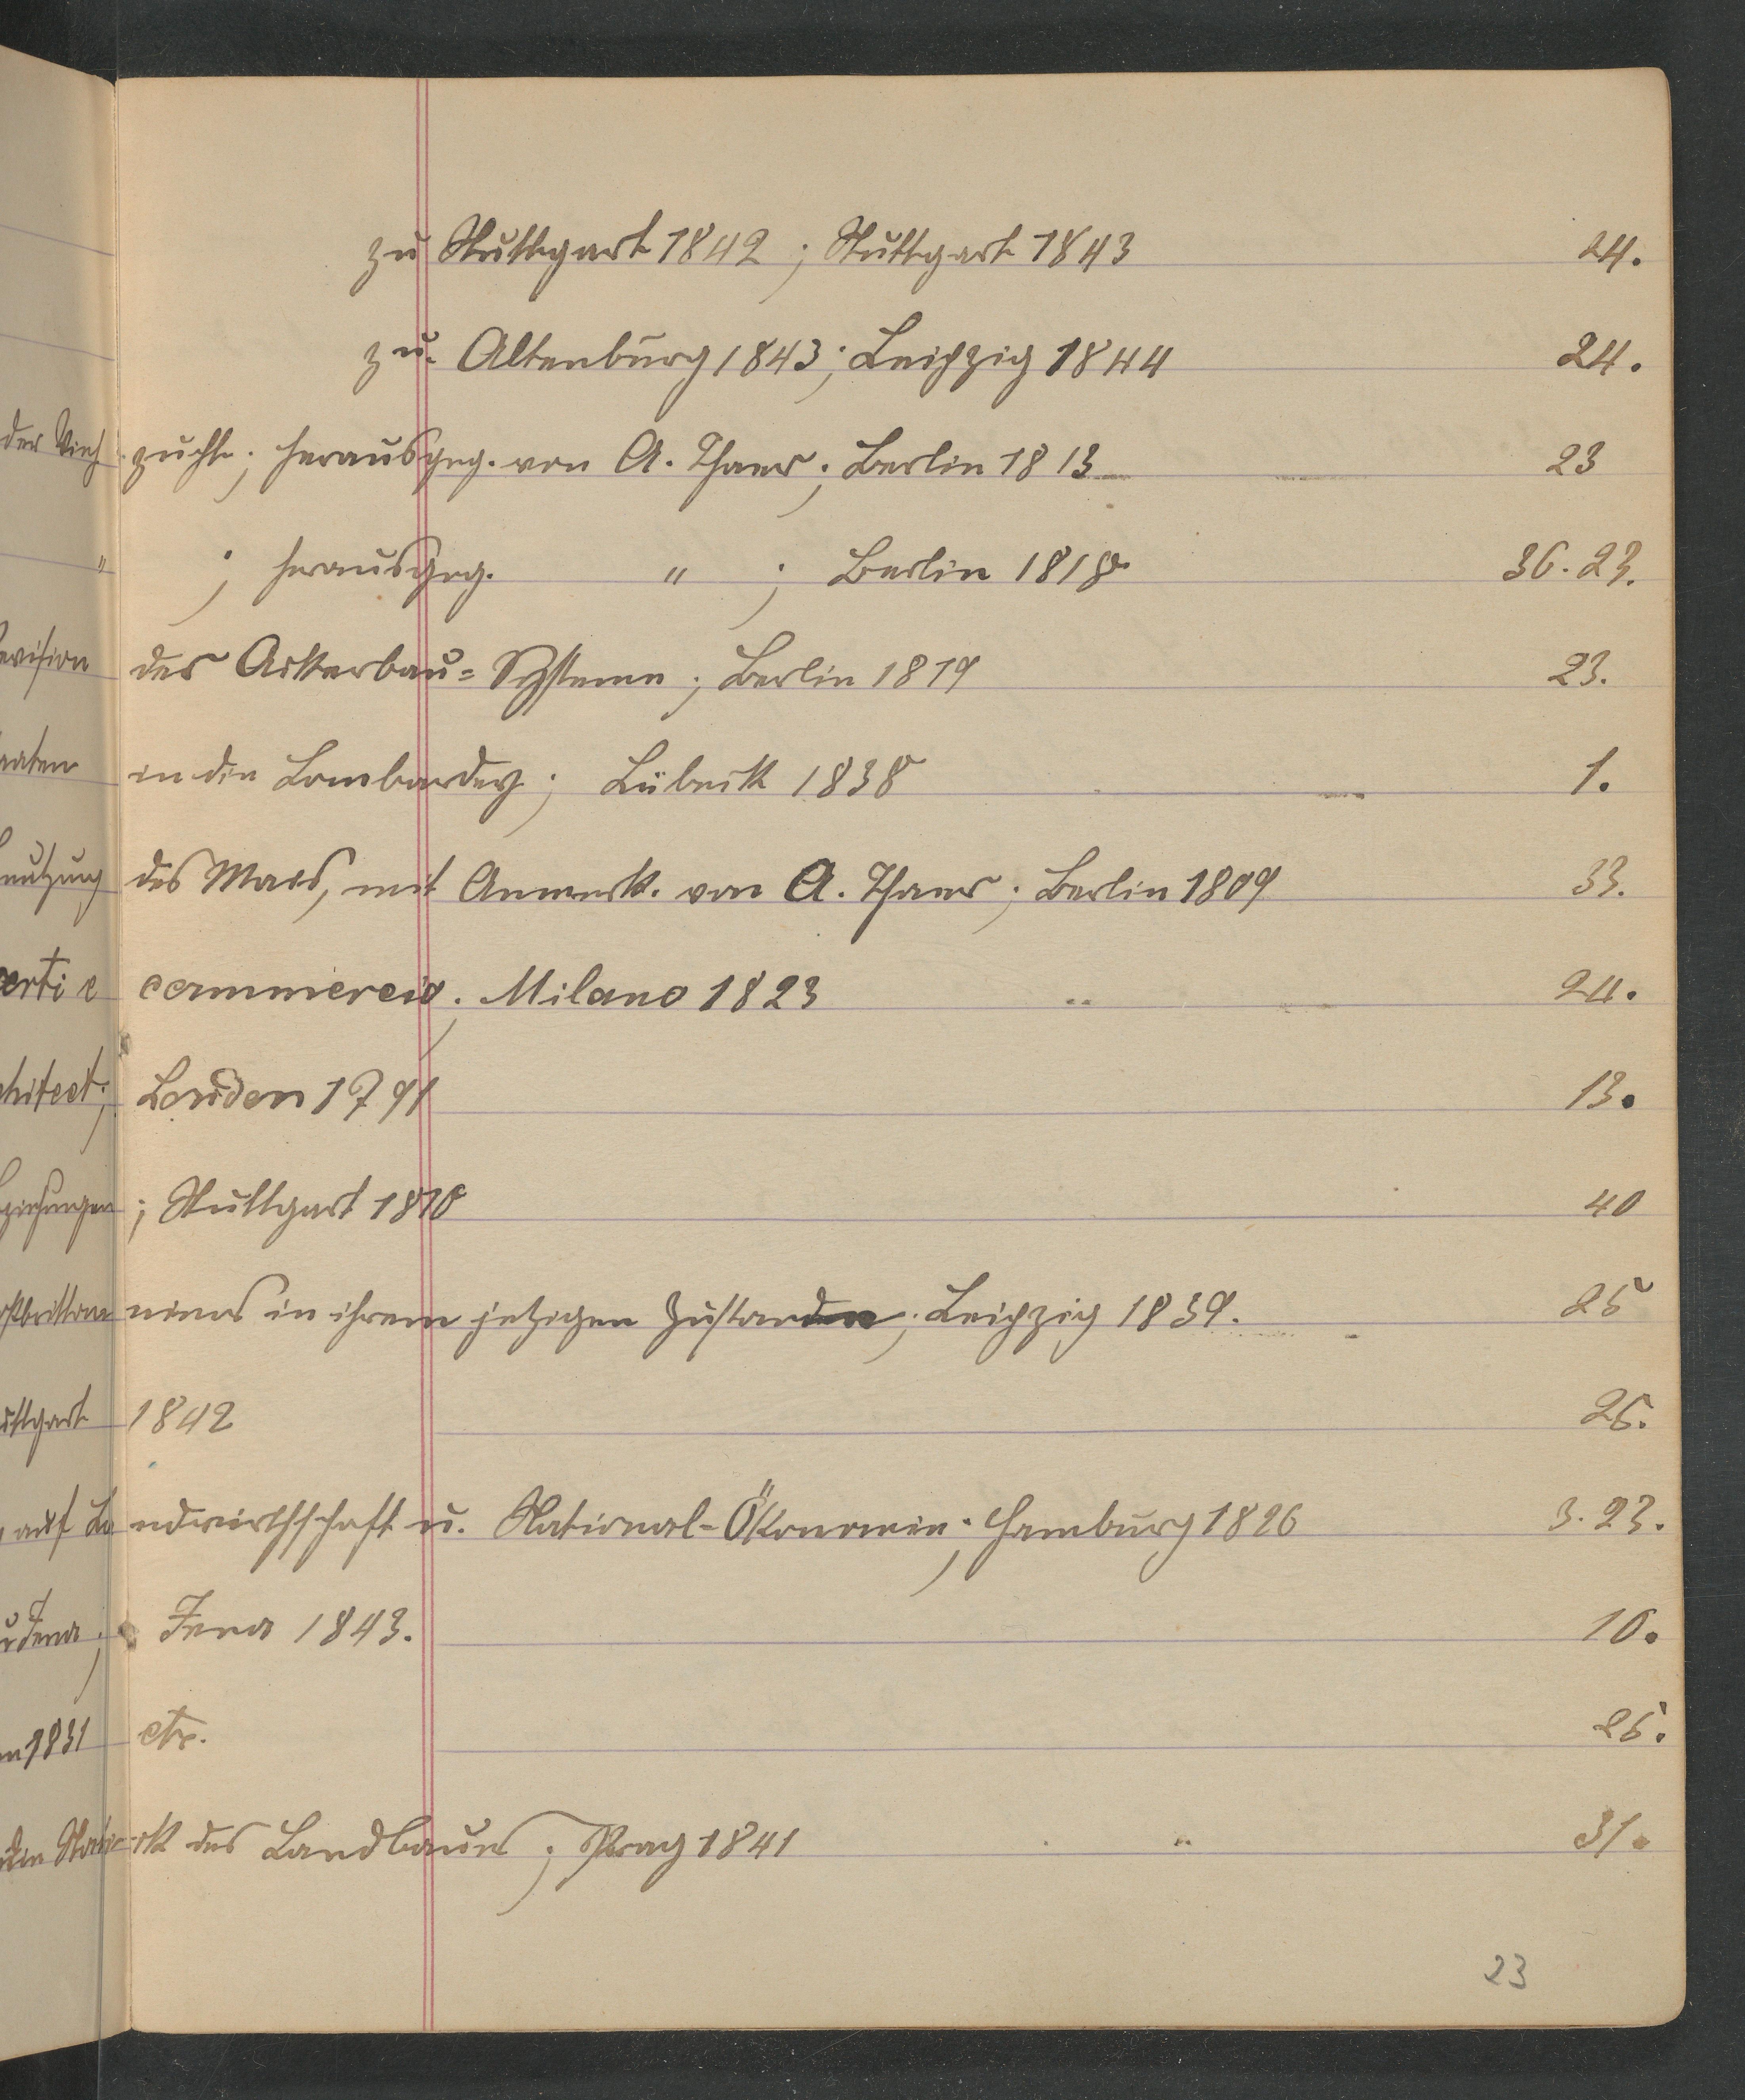 zu Stuttgart 1842; Stuttgart 1843 24.
zu Altenburg 1843; Leipzig 1844 24.
der Vieh zucht; herausgeg. von A. Thaer; Berlin 1813 23
" ; herausgeg. " ; Berlin 1818 36. 23.
evision des Ackerbau= Systeme; Berlin 1819 23.
aaten in die Lombardey; Lübeck 1838 1.
nutzung des Mais, mit Anmerk. von A. Thaer; Berlin 1809 33.
erti e commercio; Milano 1823 24.
chitect; London 1791 13.
ziehungen ; Stuttgart 1810 40
oßbritton niens in ihrem jetzigen Zustande; Leipzig 1839. 25
uttgart 1842 26.
auf La ndwirthschaft u. National-Ökonomie; Hamburg 1826 3. 23.
zu Jena; Jena 1843. 10.
n 1831 etc. 26.
den Stati- tik des Landbaues; Prag 1841 31.
23